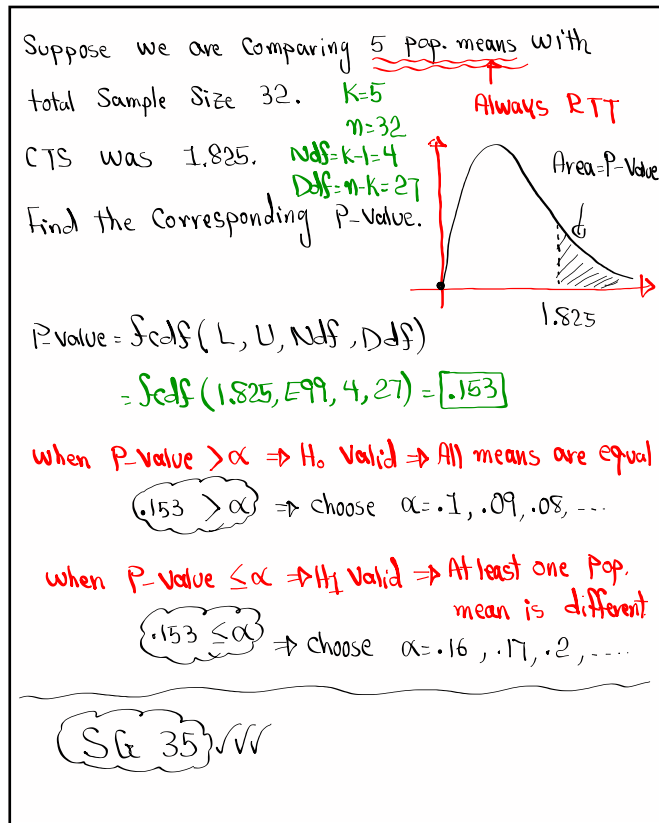 Suppose we are comparing 5 pop. means with
total Sample Size 32.
K=5
n=32
Always RTT
CTS was 1.825.
Ndf=K-1=4
Ddf=n-K=27
Area=P-Value
Find the Corresponding P-Value.
1.825
P-Value = fcdf(L, U, Ndf, Ddf)
= fcdf(1.825, E99, 4, 27) = .153
when P-Value > α ⇒ H₀ Valid ⇒ All means are equal
.153 > α ⇒ choose α=.1, .09, .08, ...
when P-Value ≤ α ⇒ H1 Valid ⇒ At least one pop.
mean is different
.153 ≤ α ⇒ choose α=.16, .17, .2, ....
SG 35 ✓✓✓